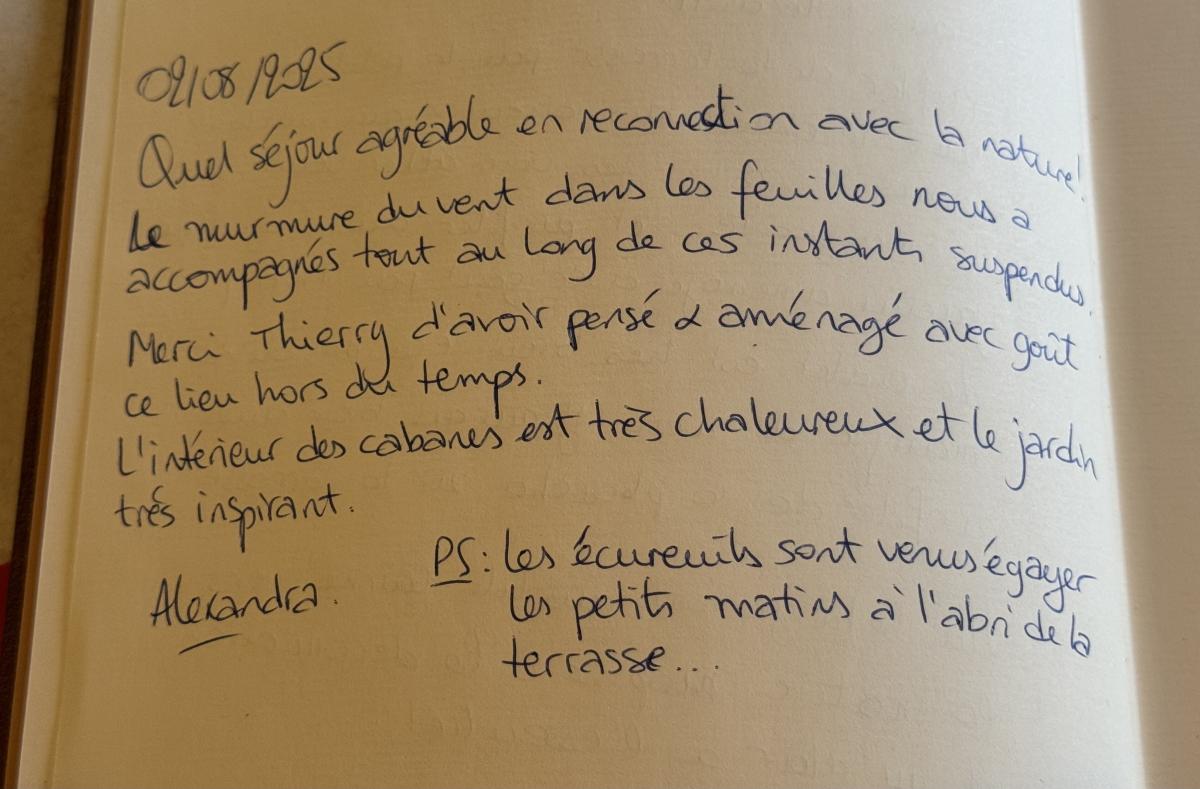 02/08/2025
Quel séjour agréable en reconnection avec la nature!
Le murmure du vent dans les feuilles nous a
accompagnés tout au long de ces instants suspendus.
Merci Thierry d'avoir pensé & aménagé avec goût
ce lieu hors du temps.
L'intérieur des cabanes est très chaleureux et le jardin
très inspirant.
PS: les écureuils sont venus égayer
les petits matins à l'abri de la
terrasse...
Alexandra.